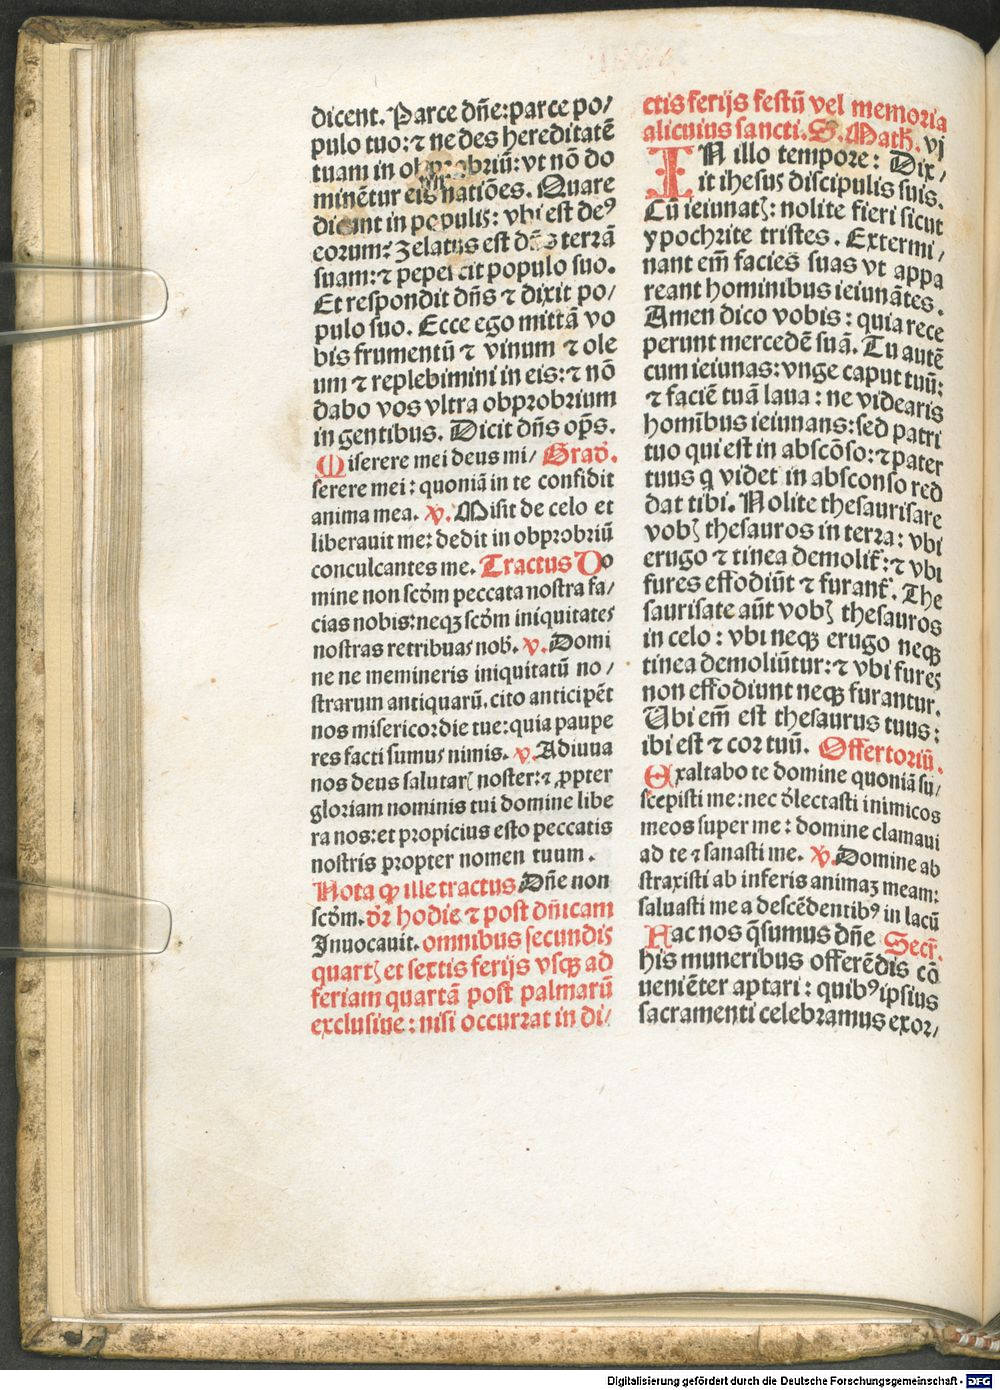 dicent. Parce dn̄e: parce po/
pulo tuo: ⁊ ne des hereditatē
tuam in obprobriū: vt nō do
minētur eis natiōes. Quare
dicunt in populis: vbi est deꝰ
eorum: zelatus est dn̄s terrā
suam: ⁊ pepercit populo suo.
Et respondit dn̄s ⁊ dixit po/
pulo suo. Ecce ego mittā vo
bis frumentū ⁊ vinum ⁊ ole
um ⁊ replebimini in eis: ⁊ nō
dabo vos vltra obprobrium
in gentibus. Dicit dn̄s op̄s.
Miserere mei deus mi/ Grad̄.
serere mei: quoniā in te confidit
anima mea. v. Misit de celo et
liberauit me: dedit in obprobriū
conculcantes me. Tractus Do
mine non scd̄m peccata nostra fa/
cias nobis: neqꝫ scd̄m iniquitates
nostras retribuas nob̄. v. Domi
ne ne memineris iniquitatū no/
strarum antiquarū. cito anticipēt
nos misericordie tue: quia paupe
res facti sumus nimis. v. Adiuua
nos deus salutarꝭ noster: ⁊ ꝓpter
gloriam nominis tui domine libe
ra nos: et propicius esto peccatis
nostris propter nomen tuum.
Nota ꝙ ille tractus Dn̄e non
scd̄m. dr̄ hodie ⁊ post dn̄icam
Inuocauit. omnibus secundis
quartꝭ et sextis ferijs vsqꝫ ad
feriam quartā post palmarū
exclusiue: nisi occurrat in di/
ctis ferijs festū vel memoria
alicuius sancti. S. Math. vj
IN illo tempore: Dix/
it ihesus discipulis suis.
Cū ieiunatꝭ: nolite fieri sicut
ypochrite tristes. Extermi/
nant em̄ facies suas vt appa
reant hominibus ieiunātes.
Amen dico vobis: quia rece
perunt mercedē suā. Tu autē
cum ieiunas: vnge caput tuū:
⁊ faciē tuā laua: ne videaris
homībus ieiunans: sed patri
tuo qui est in abscōso: ⁊ pater
tuus q̄ videt in absconso red
dat tibi. Nolite thesaurisare
vobꝭ thesauros in terra: vbi
erugo ⁊ tinea demolit̄: ⁊ vbi
fures effodiūt ⁊ furant̄. The
saurisate aūt vobꝭ thesauros
in celo: vbi neqꝫ erugo neqꝫ
tinea demoliūtur: ⁊ vbi fures
non effodiunt neqꝫ furantur.
Ubi em̄ est thesaurus tuus:
ibi est ⁊ cor tuū. Offertoriū.
Exaltabo te domine quoniā su/
scepisti me: nec d̄lectasti inimicos
meos super me: domine clamaui
ad te ⁊ sanasti me. v̄. Domine ab
straxisti ab inferis animaꝫ meam:
saluasti me a descēdentibꝰ in lacū
Hac nos q̄sumus dn̄e Secr̄.
his muneribus offerēdis cō
ueniēter aptari: quibꝰ ipsius
sacramenti celebramus exor/
Digitalisierung gefördert durch die Deutsche Forschungsgemeinschaft - DFG